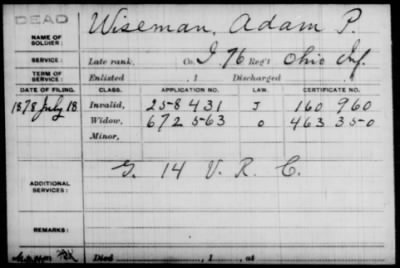 DEAD
NAME OF SOLDIER: Wiseman, Adam P.
SERVICE: Late rank, Co. I, 76 Reg't Ohio Inf.
TERM OF SERVICE: Enlisted , 1 Discharged
DATE OF FILING. CLASS. APPLICATION NO. LAW. CERTIFICATE NO.
1878 July 18 Invalid, 258 431 J 160 960
Widow, 672 563 O 463 350
Minor,
ADDITIONAL SERVICES: G. 14 V. R. C.
REMARKS:
Died , 1 , at